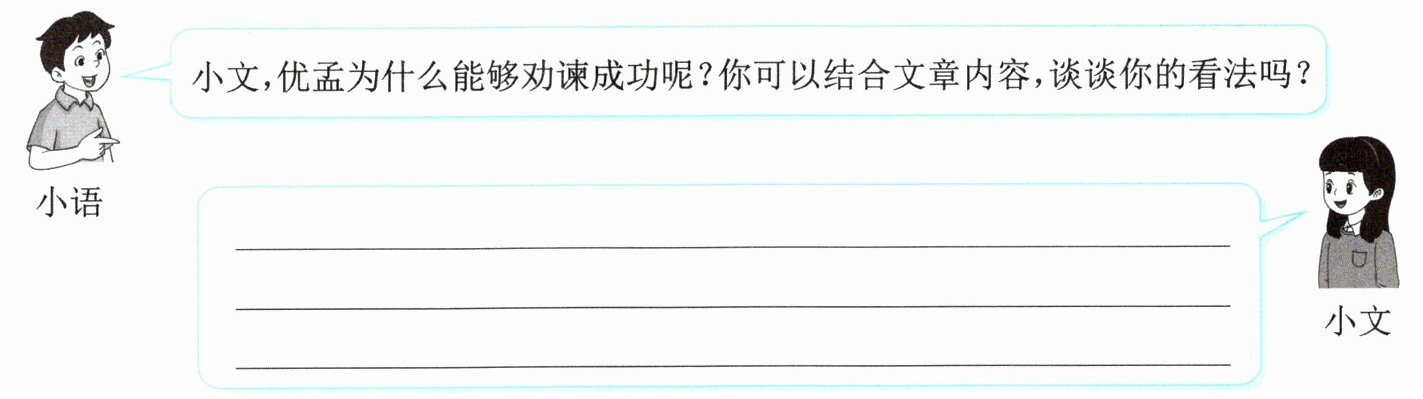 小文,优孟为什么能够劝谏成功呢?你可以结合文章内容,谈谈你的看法吗?
小语
小文